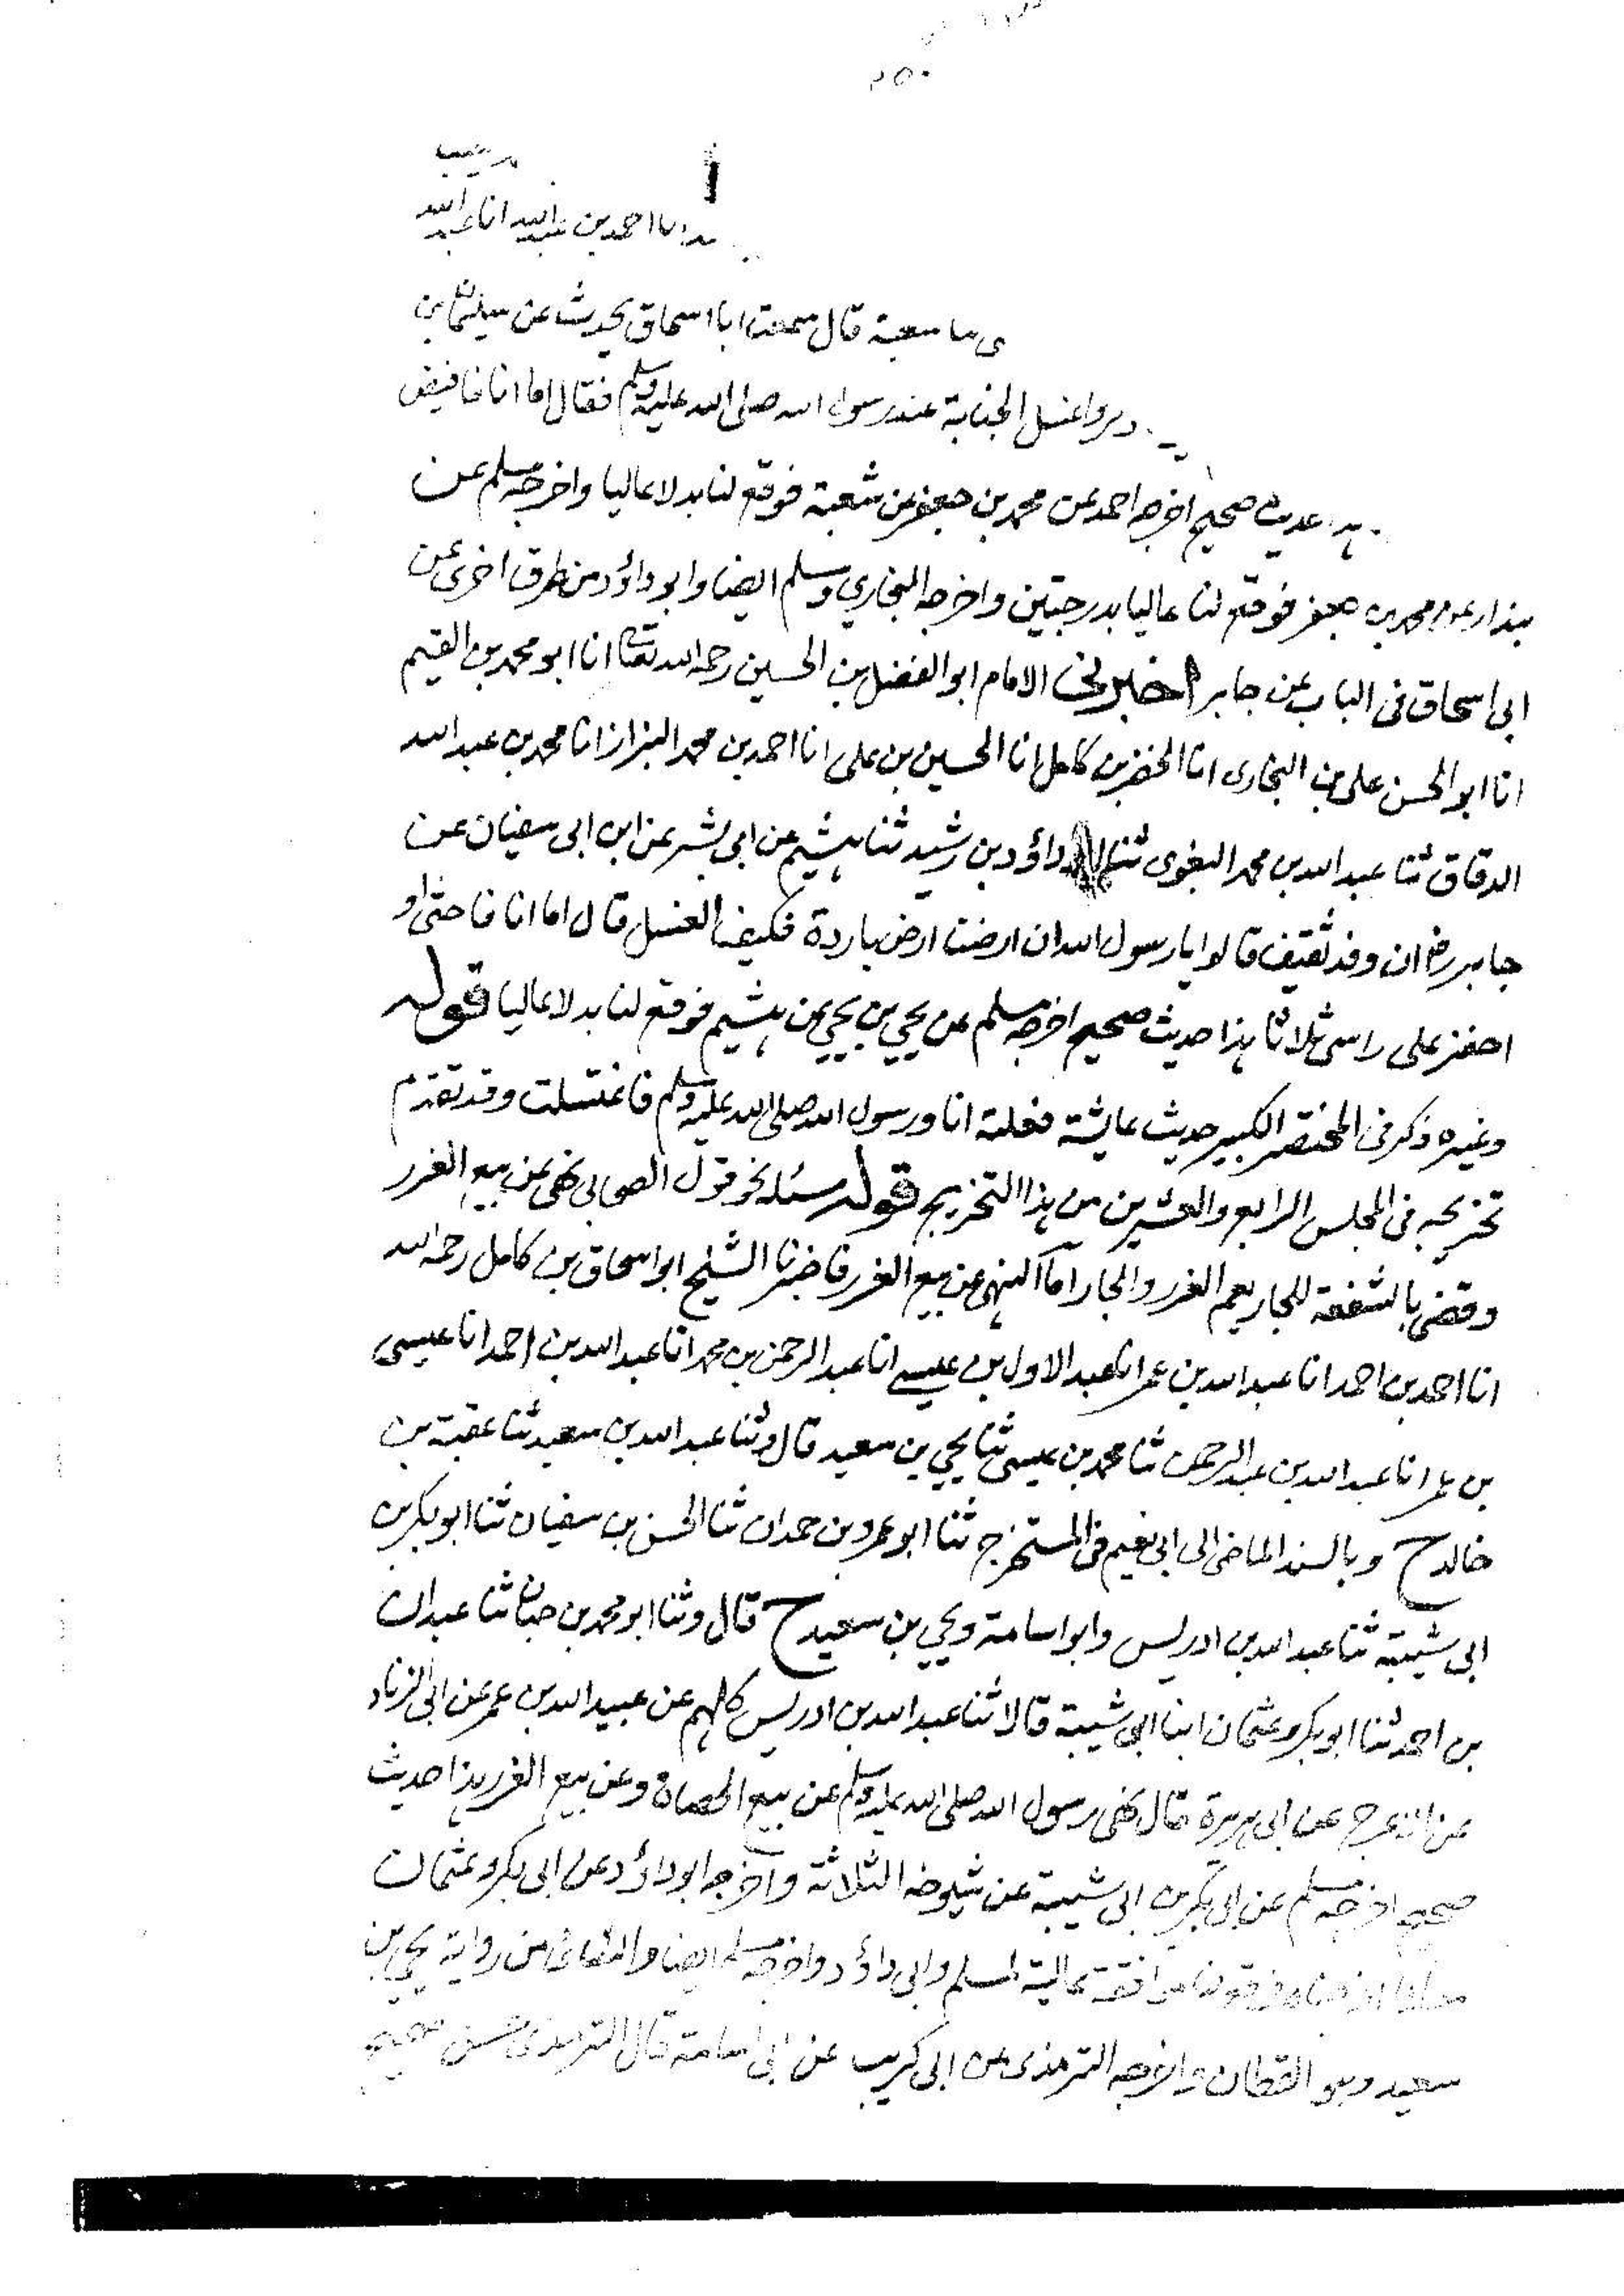 احمد بن عبد الله انا عبد الله
شعبة قال سمعت ابا اسحاق يحدث عن سليمان بن
غسل الجنابة عند رسول الله صلى الله عليه وسلم فقال اما انا فافيض
حديث صحيح اخرجه احمد عن محمد بن جعفر عن شعبة فوقع لنا بدلا عاليا واخرجه مسلم عن
بندار عن محمد بن جعفر فوقع لنا عاليا بدرجتين واخرجه البخاري ومسلم ايضا وابو داؤد من طرق اخرى عن
ابى اسحاق فى الباب عن جابر اخبرنى الامام ابو الفضل بن الحسين رحمه الله تعالى انا ابو محمد بن القيم
انا ابو الحسن على بن البخارى انا الخضر بن كامل انا الحسين بن على انا احمد بن محمد البزاز انا محمد بن عبد الله
الدقاق ثنا عبد الله بن محمد البغوى ثنا داؤد بن رشيد ثنا هشيم عن ابى بشر عن ابى سفيان عن
جابر رضـ ان وفد ثقيف قالوا يا رسول الله ان ارضنا ارض باردة فكيف الغسل قال اما انا فاحثى او
احفز على راسى ثلاثا هذا حديث صحيح اخرجه مسلم عن يحيى بن يحيى عن هشيم فوقع لنا بدلا عاليا قوله
وغيره ذكر فى المختصر الكبير حديث عايشة فعلته انا ورسول الله صلى الله عليه وسلم فاغتسلت وقد تقدم
تخريجه فى المجلس الرابع والعشرين من هذا التخريج قوله مسئلة نحو قول الصحابى نهى عن بيع الغرر
وقضى بالشفعة للجار يعم الغرر والجار اما النهى عن بيع الغرر فاخبرنا الشيخ ابو اسحاق بن كامل رحمه الله
انا احمد بن احمد انا عبد الله بن عمر انا عبد الاول بن عيسى انا عبد الرحمن بن محمد انا عبد الله بن احمد انا عيسى
بن عمر انا عبد الله بن عبد الرحمن ثنا محمد بن عيسى ثنا يحيى بن سعيد قال وثنا عبد الله بن سعيد ثنا عقبة بن
خالد ح وبالسند الماضى الى ابى نعيم فى المستخرج ثنا ابو عمرو بن حمدان ثنا الحسن بن سفيان ثنا ابو بكر بن
ابى شيبة ثنا عبد الله بن ادريس وابو اسامة ويحيى بن سعيد ح قال وثنا ابو محمد بن حيان ثنا عبدان
بن احمد ثنا ابو بكر وعثمان ابنا ابى شيبة قالا ثنا عبد الله بن ادريس كلهم عن عبيد الله بن عمر عن ابى الزناد
عن الاعرج عن ابى هريرة قال نهى رسول الله صلى الله عليه وسلم عن بيع الحصاة وعن بيع الغرر هذا حديث
صحيح اخرجه مسلم عن ابى بكر بن ابى شيبة عن شيوخه الثلاثة واخرجه ابو داؤد عن ابى بكر وعثمان
موافقة عالية لمسلم وابى داؤد واخرجه مسلم ايضا والنسائى من رواية يحيى بن
سعيد وهو القطان واخرجه الترمذى عن ابى كريب عن ابى اسامة قال الترمذى حسن صحيح